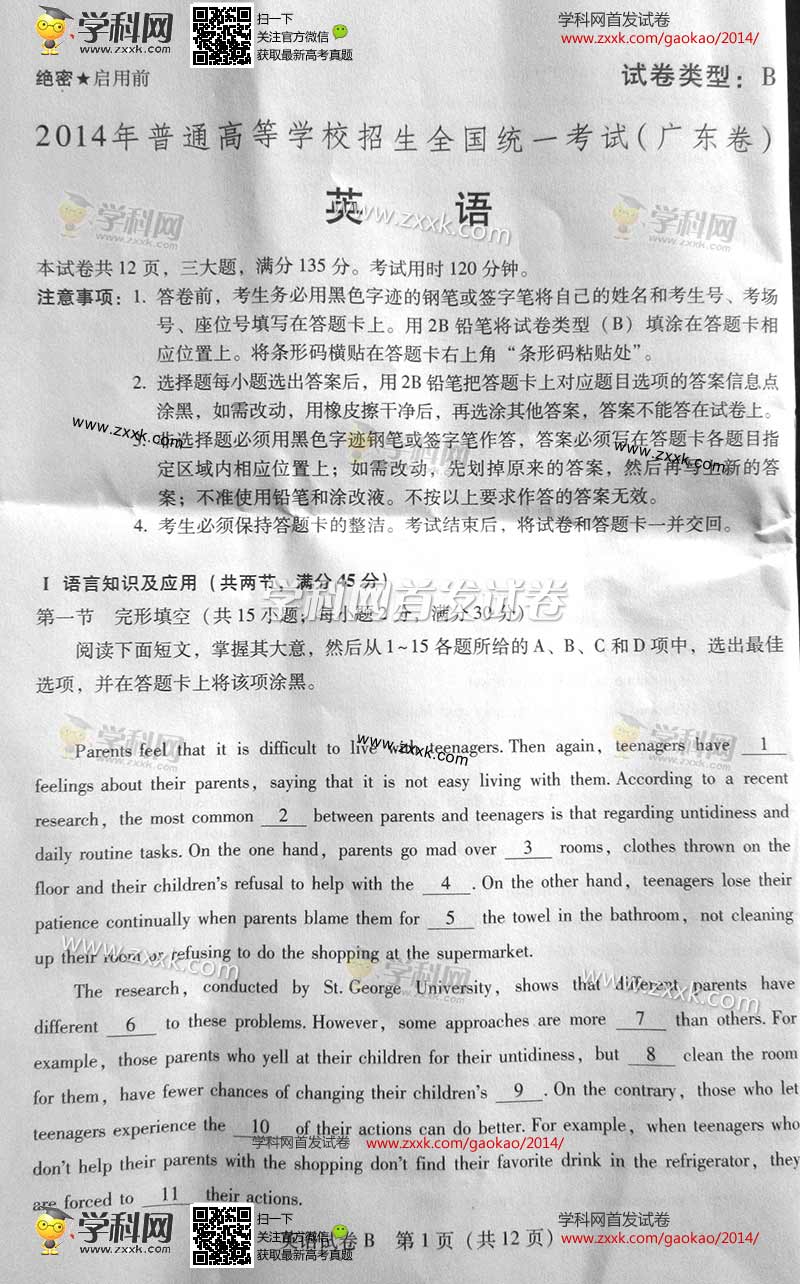 学科网
www.zxxk.com
扫一下
关注官方微信
获取最新高考真题
学科网首发试卷
www.zxxk.com/gaokao/2014/
绝密★启用前
试卷类型：B
2014年普通高等学校招生全国统一考试（广东卷）
英 语
学科网
www.zxxk.com
www.zxxk.com
学科网
www.zxxk.com
本试卷共12页，三大题，满分135分。考试用时120分钟。
注意事项：1. 答卷前，考生务必用黑色字迹的钢笔或签字笔将自己的姓名和考生号、考场
号、座位号填写在答题卡上。用2B铅笔将试卷类型（B）填涂在答题卡相
应位置上。将条形码横贴在答题卡右上角“条形码粘贴处”。
2. 选择题每小题选出答案后，用2B铅笔把答题卡上对应题目选项的答案信息点
涂黑，如需改动，用橡皮擦干净后，再选涂其他答案，答案不能答在试卷上。
www.zxxk.com
3. 非选择题必须用黑色字迹钢笔或签字笔作答，答案必须写在答题卡各题目指
学科网
www.zxxk.com
定区域内相应位置上；如需改动，先划掉原来的答案，然后再写上新的答
案；不准使用铅笔和涂改液。不按以上要求作答的答案无效。
4. 考生必须保持答题卡的整洁。考试结束后，将试卷和答题卡一并交回。
Ⅰ 语言知识及应用（共两节，满分45分）
学科网首发试卷
第一节 完形填空（共15小题；每小题2分，满分30分）
阅读下面短文，掌握其大意，然后从1~15各题所给的A、B、C和D项中，选出最佳
选项，并在答题卡上将该项涂黑。
学科网
www.zxxk.com
www.zxxk.com
学科网
www.zxxk.com
Parents feel that it is difficult to live with teenagers. Then again, teenagers have 1
feelings about their parents, saying that it is not easy living with them. According to a recent
research, the most common 2 between parents and teenagers is that regarding untidiness and
daily routine tasks. On the one hand, parents go mad over 3 rooms, clothes thrown on the
floor and their children's refusal to help with the 4 . On the other hand, teenagers lose their
patience continually when parents blame them for 5 the towel in the bathroom, not cleaning
up their room or refusing to do the shopping at the supermarket.
www.zxxk.com
学科网
www.zxxk.com
www.zxxk.com
The research, conducted by St. George University, shows that different parents have
different 6 to these problems. However, some approaches are more 7 than others. For
example, those parents who yell at their children for their untidiness, but 8 clean the room
for them, have fewer chances of changing their children's 9 . On the contrary, those who let
teenagers experience the 10 of their actions can do better. For example, when teenagers who
学科网首发试卷
www.zxxk.com/gaokao/2014/
don't help their parents with the shopping don't find their favorite drink in the refrigerator, they
are forced to 11 their actions.
学科网
www.zxxk.com
扫一下
关注官方微信
获取最新高考真题
英语试卷B 第1页（共12页）
学科网首发试卷
www.zxxk.com/gaokao/2014/